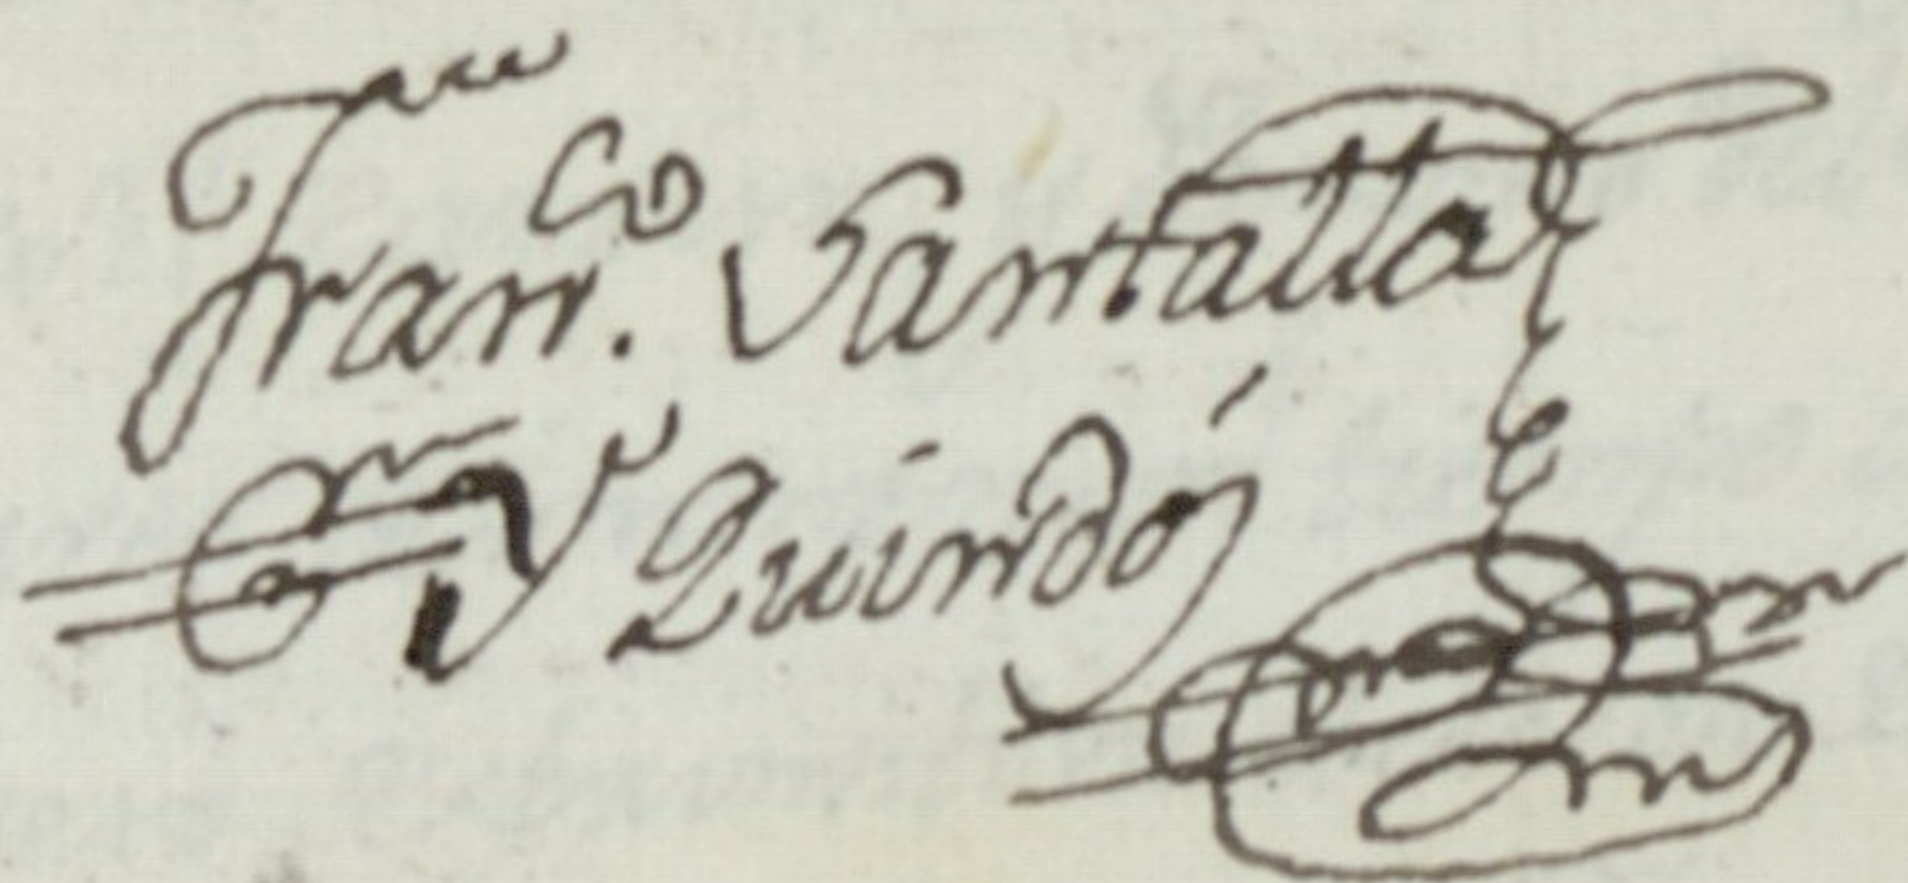 Fran.co Santalla
y Quindós